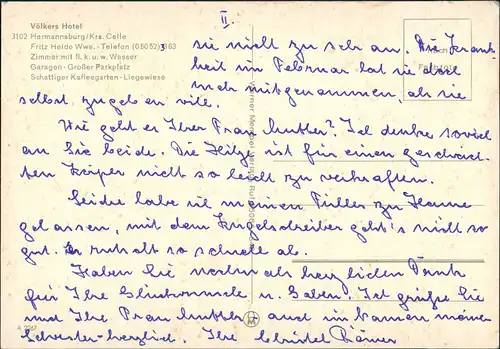 Völkers Hotel
3102 Hermannsburg/Krs. Celle
Fritz Heide Wwe. - Telefon (05052) 3183
Zimmer mit fl. k. u. w. Wasser
Garagen - Großer Parkplatz
Schattiger Kaffeegarten - Liegewiese
II.
sie nicht zu sehr an. Die Krank
heit im Februar hat sie doch
mehr mitgenommen, als sie
selbst zugeben will.
Wie geht es Ihrer Frau Mutter? Ich denke so viel
an Sie beide. Die Hitze ist für einen geschwäch-
ten Körper nicht so leicht zu verkraften.
Leider habe ich meinen Füller zu Hause
gelassen, mit dem Kugelschreiber geht's nicht so
gut. Er rutscht so schnell ab.
Haben Sie nochmals herzlichen Dank
für Ihre Glückwünsche u. Gaben. Ich grüße Sie
und Ihre Frau Mutter auch im Namen meiner
Schwester herzlich. Ihre Christel